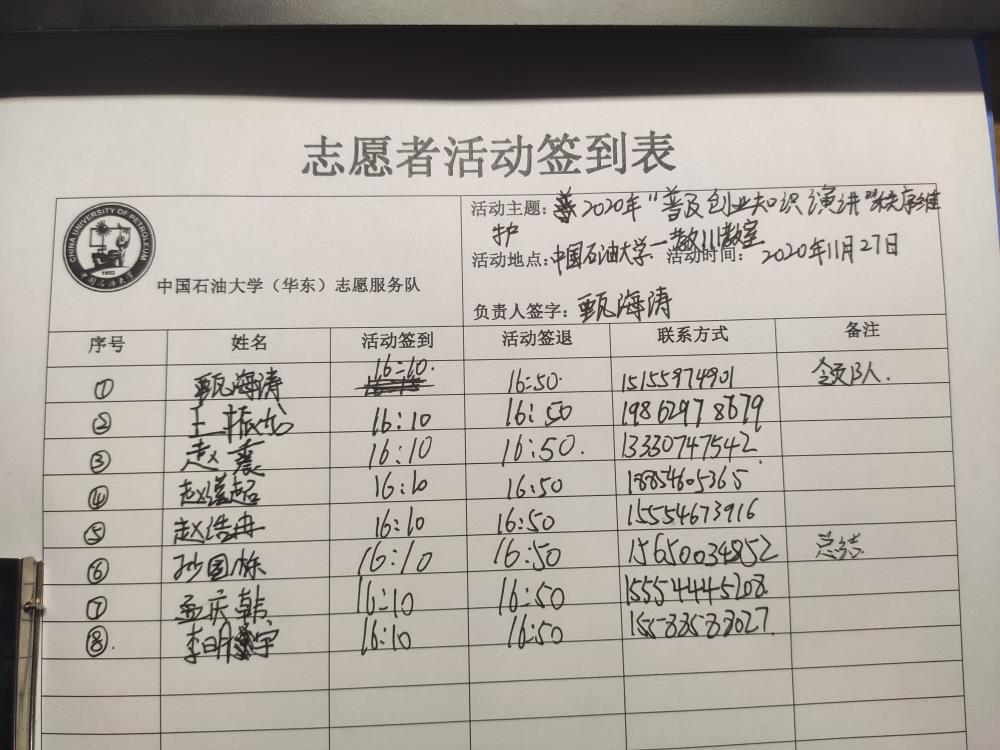 志愿者活动签到表
CHINA UNIVERSITY OF PETROLEUM
1953
中国石油大学
中国石油大学（华东）志愿服务队
活动主题：2020年“普及创业知识演讲”秩序维
护
活动地点：中国石油大学一教111教室 活动时间：2020年11月27日
负责人签字：甄海涛
序号 姓名 活动签到 活动签退 联系方式 备注
① 甄海涛 16:10 16:50 15155974901 领队
② 王振龙 16:10 16:50 19862978679
③ 赵襄 16:10 16:50 13330747542
④ 赵谨超 16:10 16:50 18854605365
⑤ 赵浩冉 16:10 16:50 15554673916
⑥ 孙国栋 16:10 16:50 15650034852 总结
⑦ 孟庆韩 16:10 16:50 15554445208
⑧ 李明宇 16:10 16:50 15588588027